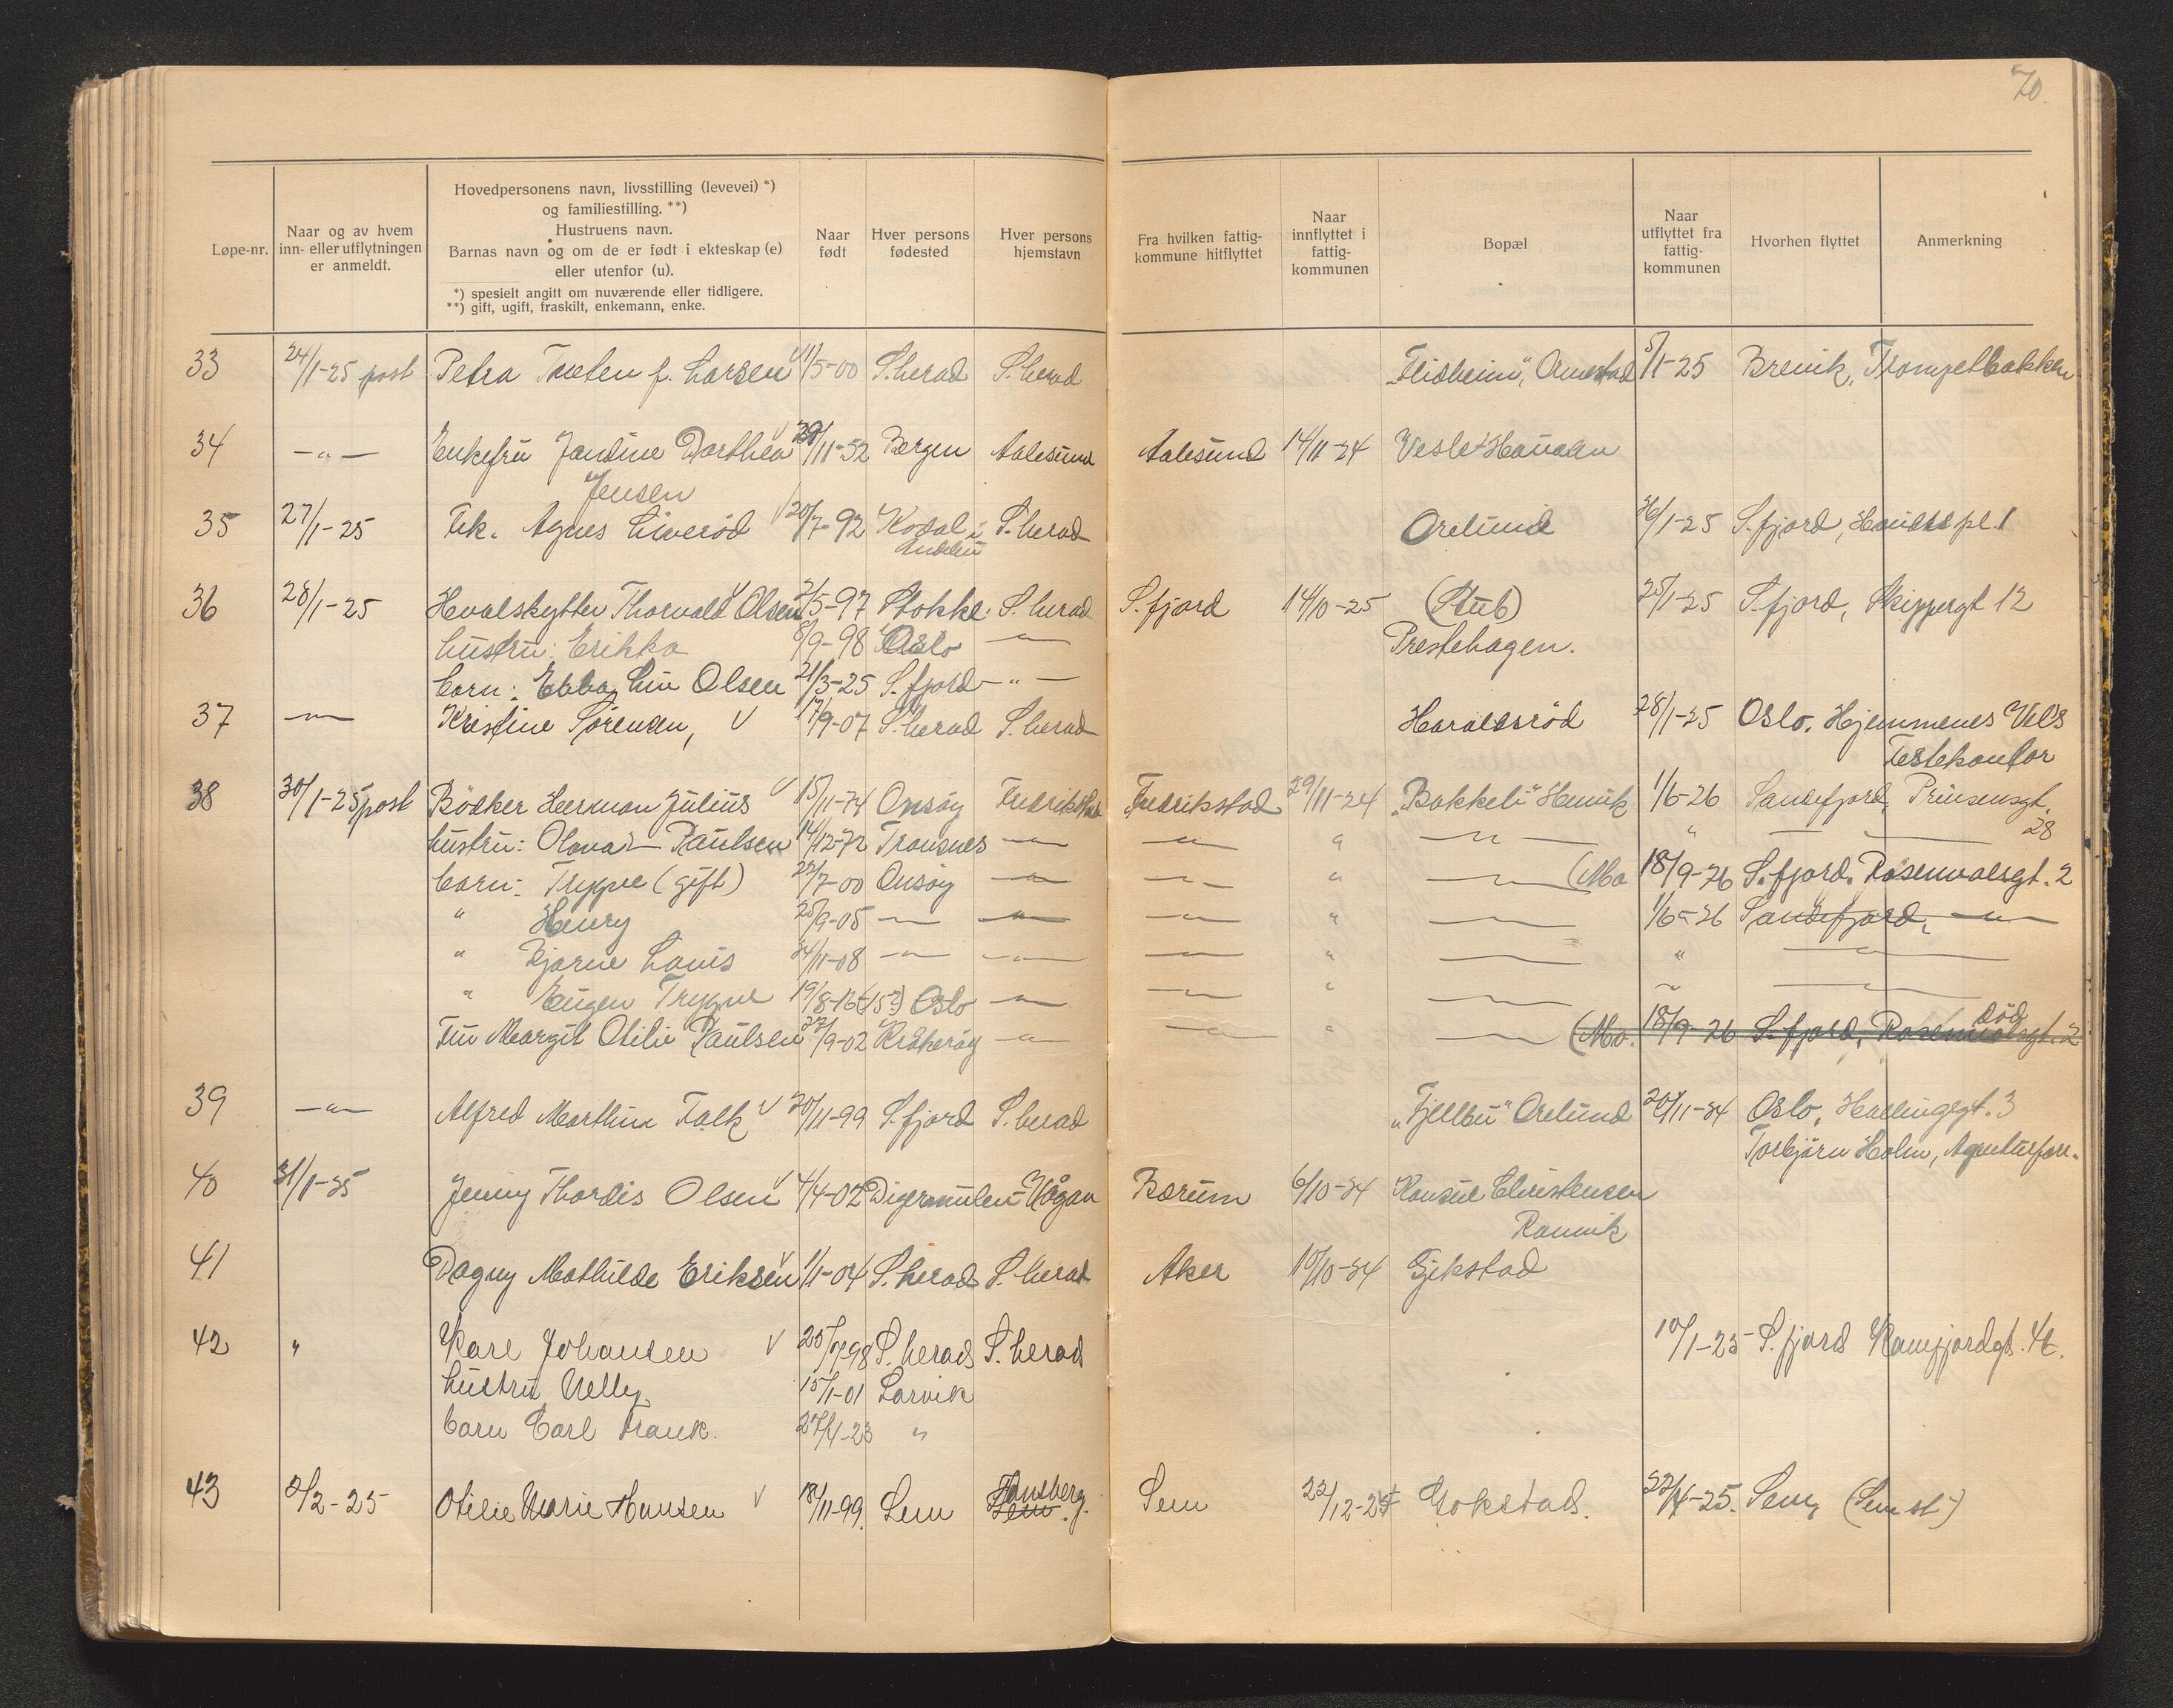 70.
Løpe-nr. Naar og av hvem inn- eller utflytningen er anmeldt. Hovedpersonens navn, livsstilling (levevei) *) og familiestilling. **) Hustruens navn. Barnas navn og om de er født i ekteskap (e) eller utenfor (u). *) spesielt angitt om nuværende eller tidligere. **) gift, ugift, fraskilt, enkemann, enke. Naar født Hver persons fødested Hver persons hjemstavn Fra hvilken fattig-kommune hitflyttet Naar innflyttet i fattig-kommunen Bopæl Naar utflyttet fra fattig-kommunen Hvorhen flyttet Anmerkning
33 24/1-25 post Petra f. Larsen 1/5-00 S.herad S.herad 5/1-25 Brevik, Trompetbakken
34 -"- Enkefru Jandine Dorthea 29/11-52 Bergen Aalesund Aalesund 14/11-24 Vesle-Haukøen
Jensen
35 27/1-25 Frk. Agnes Liverød 20/7-92 Kodal i S.herad Orelund 1-25 S.fjord, pl. 1
Andebu
36 28/1-25 Hvalskytter Thorvald Olsen 2/5-97 Stokke S.herad S.fjord 14/10-25 (Stub) 25/1-25 S.fjord, Skippergt 12
hustru: Erikka 8/9-98 Oslo -"- Prestehagen.
barn: Ebba Liv Olsen 21/3-25 S.fjord -"-
37 -"- Kristine Sørensen, 17/9-07 S.herad S.herad Haraldsrød 28/1-25 Oslo. Hjemmenes Vels
Festekontor
38 30/1-25 post Bödker Herman Julius 15/11-74 Onsøy Fredrikstad Fredrikstad 29/11-24 "Bakkeli" 1/6-26 Sandefjord, Prinsensgt.
28
hustru: Olava - Paulsen 14/12-72 Tronsnes -"- -"- " -"- " -"-
barn: Trygve (gift) 22/7-00 Onsøy -"- -"- " -"- (Mo 18/9-26 S.fjord. Rosenvolsgt. 2
" Henry 25/9-05 -"- -"- -"- " -"- 1/6-26 Sandefjord, -"-
" Bjarne Louis 24/11-08 -"- -"- -"- " -"- " -"-
" Eugen Trygve 19/8-16 (15?) Oslo -"- -"- " -"- " -"-
død
Fru Margit Otilie Paulsen 27/9-02 Kråkerøy -"- -"- " -"- (Mo. 18/9-26 S.fjord, Rosenvolsgt. 2
39 -"- Alfred Marthin Falk 20/11-99 S.fjord S.herad "Fjellbu" Orelund 20/11-24 Oslo, Hallingsgt. 3
Torbjørn Holm, Agenturforr.
40 31/1-25 Jenny Thordis Olsen 4/4-02 Digermulen Vågan Bærum 6/10-24 Konsul Christensen
Ranvik
41 Dagny Mathilde Eriksen 1/1-04 S.herad S.herad Aker 10/10-24 Gjekstad
42 " Karl Johansen 98 S.herad S.herad 10/1-25 S.fjord Kamfjordgt.
hustru Nelly 15/1-01 Larvik
barn Carl Frank. 27/4-23 "
43 2/2-25 Otilie Marie Hansen 18/11-99. Sem Sem. Tønsberg. Sem 22/12-24 Gokstad. 22/4-25. Sem (Sem st.)